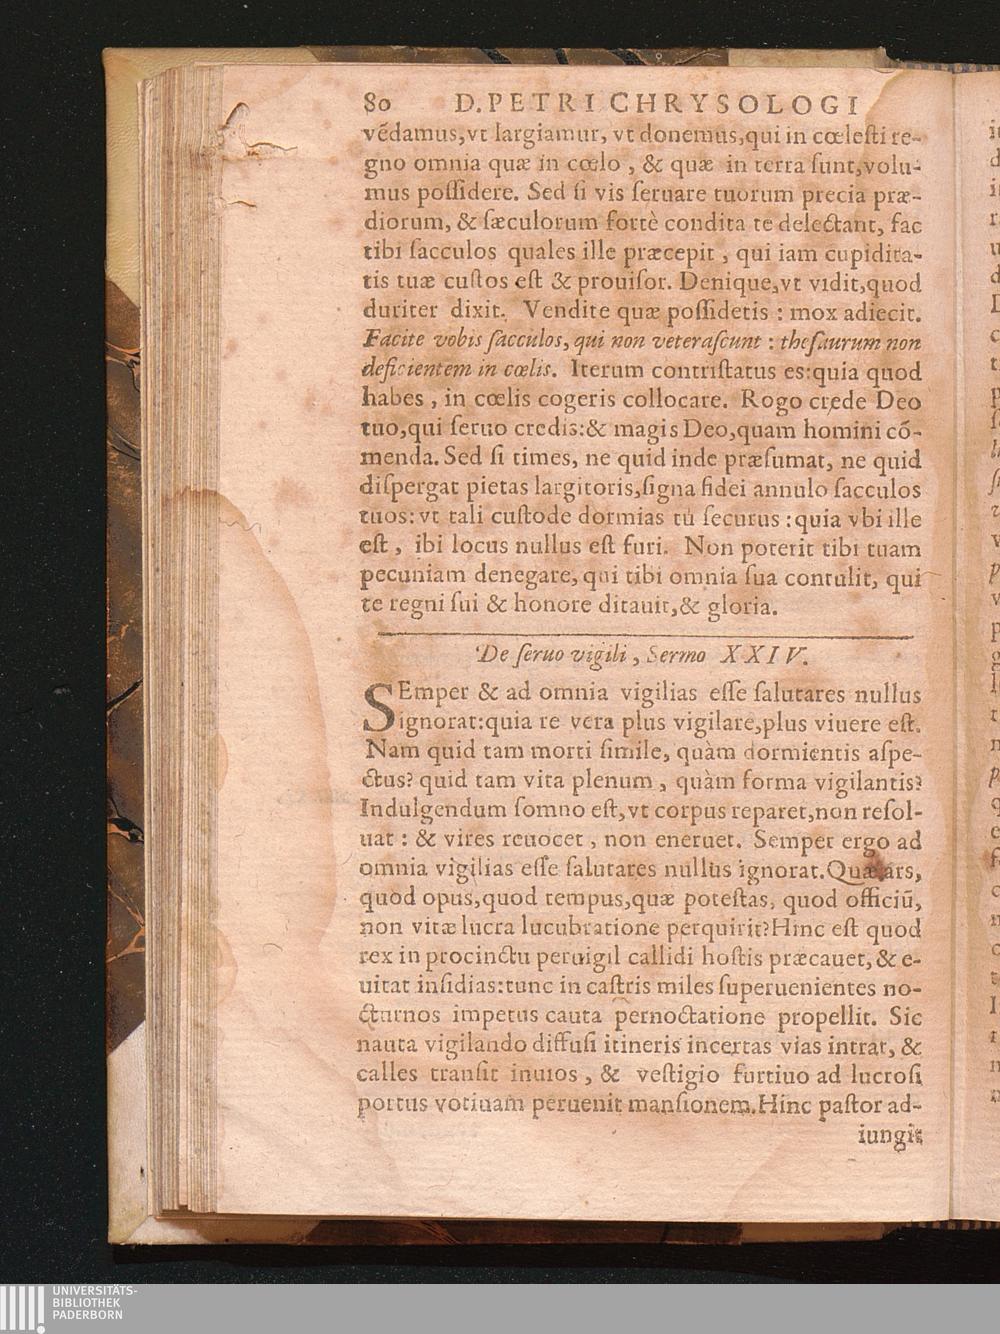 80 D. PETRI CHRYSOLOGI
vẽdamus,vt largiamur, vt donemus,qui in cœlesti re-
gno omnia quæ in cœlo , & quæ in terra sunt,volu-
mus possidere. Sed si vis seruare tuorum precia præ-
diorum, & sæculorum fortè condita te delectant, fac
tibi sacculos quales ille præcepit , qui iam cupidita-
tis tuæ custos est & prouisor. Denique,vt vidit,quod
duriter dixit. Vendite quæ possidetis : mox adiecit.
Facite vobis sacculos, qui non veterascunt : thesaurum non
deficientem in cœlis. Iterum contristatus es:quia quod
habes , in cœlis cogeris collocare. Rogo crede Deo
tuo,qui seruo credis:& magis Deo,quam homini cõ-
menda. Sed si times, ne quid inde præsumat, ne quid
dispergat pietas largitoris,signa fidei annulo sacculos
tuos: vt tali custode dormias tu securus : quia vbi ille
est , ibi locus nullus est furi. Non poterit tibi tuam
pecuniam denegare, qui tibi omnia sua contulit, qui
te regni sui & honore ditauit,& gloria.
De seruo vigili , Sermo XXIV.
SEmper & ad omnia vigilias esse salutares nullus
ignorat:quia re vera plus vigilare,plus viuere est.
Nam quid tam morti simile, quàm dormientis aspe-
ctus? quid tam vita plenum , quàm forma vigilantis?
Indulgendum somno est,vt corpus reparet,non resol-
uat : & vires reuocet , non eneruet. Semper ergo ad
omnia vigilias esse salutares nullus ignorat.Quæ ars,
quod opus,quod tempus,quæ potestas, quod officiũ,
non vitæ lucra lucubratione perquirit?Hinc est quod
rex in procinctu peruigil callidi hostis præcauet, & e-
uitat insidias:tunc in castris miles superuenientes no-
cturnos impetus cauta pernoctatione propellit. Sic
nauta vigilando diffusi itineris incertas vias intrat, &
calles transit inuios , & vestigio furtiuo ad lucrosi
portus votiuam peruenit mansionem.Hinc pastor ad-
iungit
UNIVERSITÄTS-
BIBLIOTHEK
PADERBORN